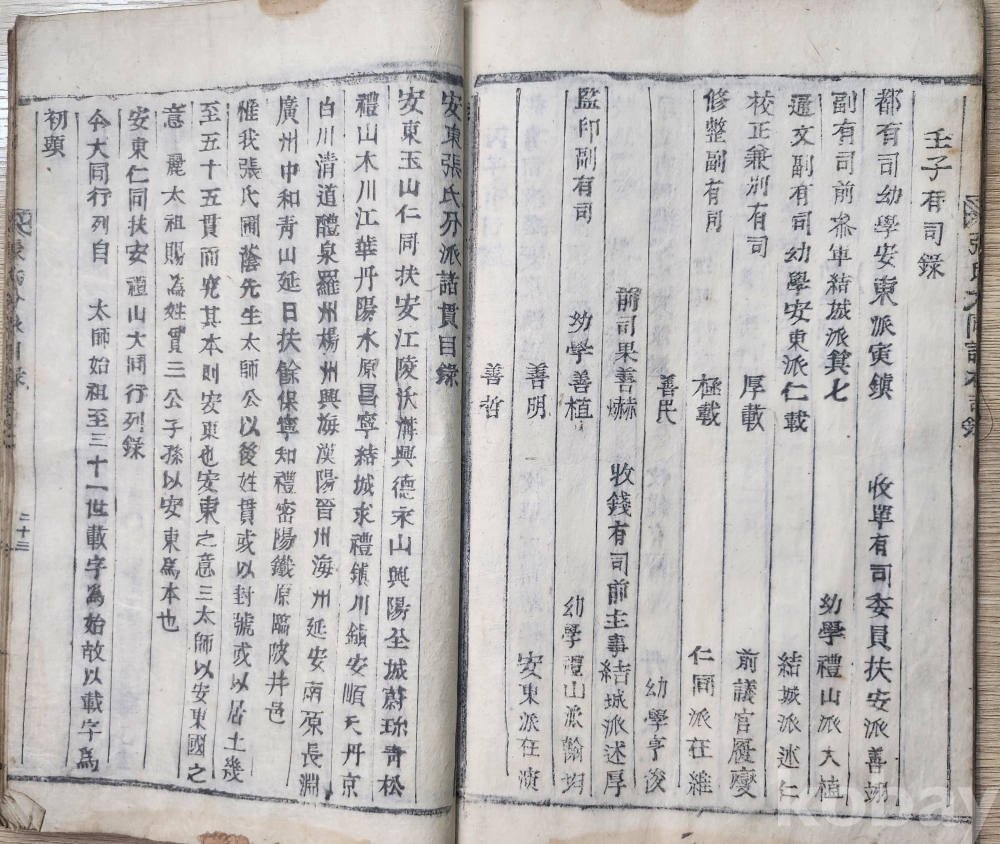 壬子有司錄
都有司幼學安東派寅鎮 收單有司委員扶安派善翊
副有司前參軍結城派箕七 幼學禮山派大植
通文副有司幼學安東派仁載 結城派述仁
校正兼別有司 厚載 前議官履燮
修整副有司 極載 仁同派在維
善民 幼學亨浚
前司果善爀 收錢有司前主事結城派述厚
監印副有司 幼學善植 幼學禮山派翰均
善明 安東派在演
善哲
安東張氏分派諸貫目錄
安東玉山仁同扶安江陵沃溝興德永山興陽全城蔚珍靑松
禮山木川江華丹陽水原昌寧結城求禮鎮川鎮安順天丹京
白川清道醴泉羅州楊州興海漢陽晉州海州延安南原長淵
廣州中和青山延日扶餘保寧知禮密陽鐵原臨陂井邑
惟我張氏圃蔭先生太師公以後姓貫或以封號或以居土幾
至五十五貫而究其本則安東也安東之意三太師以安東國之
意 麗太祖賜為姓貫三公子孫以安東爲本也
安東仁同扶安禮山大同行列錄
今大同行列自 太師始祖至三十一世載字為始故以載字爲
初頭
二十三